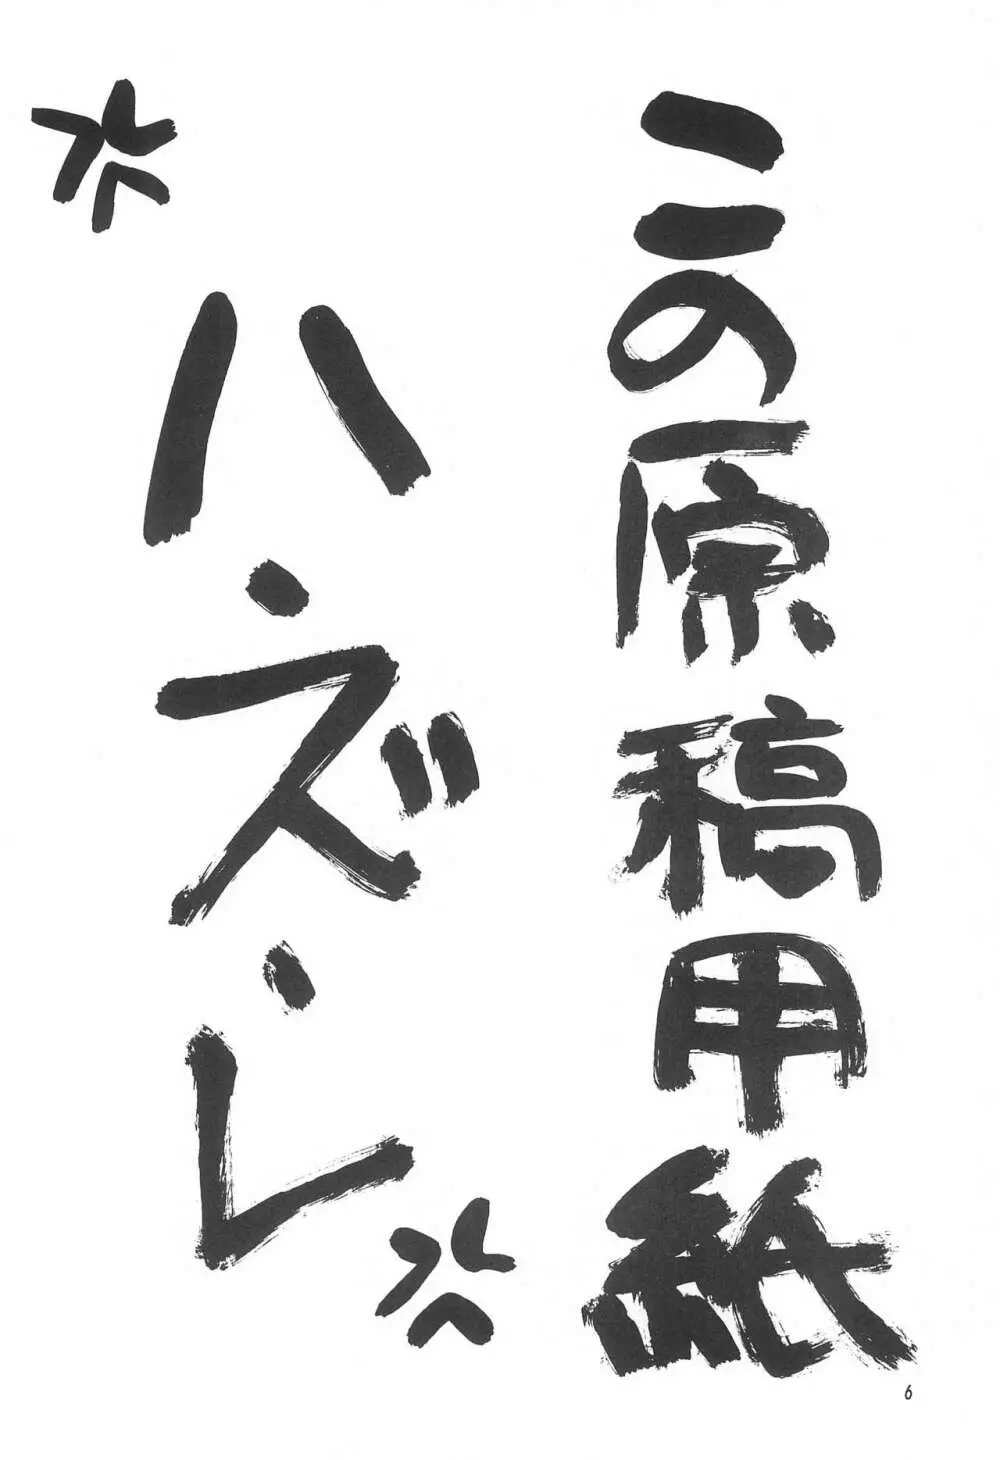 この原稿用紙
ハ、ズ、レ
6